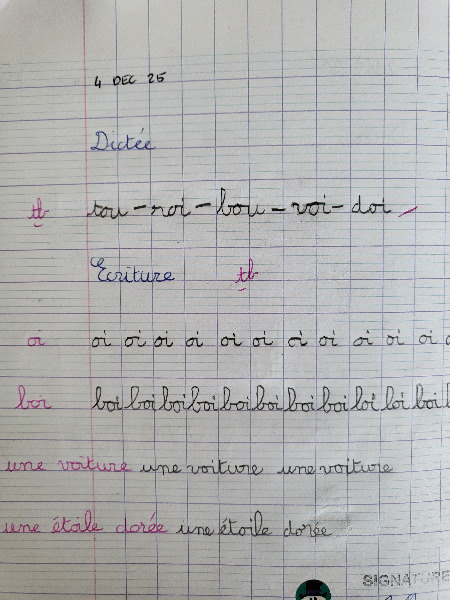 4 DEC 25
Dictée
tb tou - noi - bou - voi - doi
Ecriture tb
oi oi oi oi oi oi oi oi oi oi oi oi
boi boi boi boi boi boi boi boi boi loi loi boi
une voiture une voiture une voiture
une étoile dorée une étoile dorée
SIGNATURE